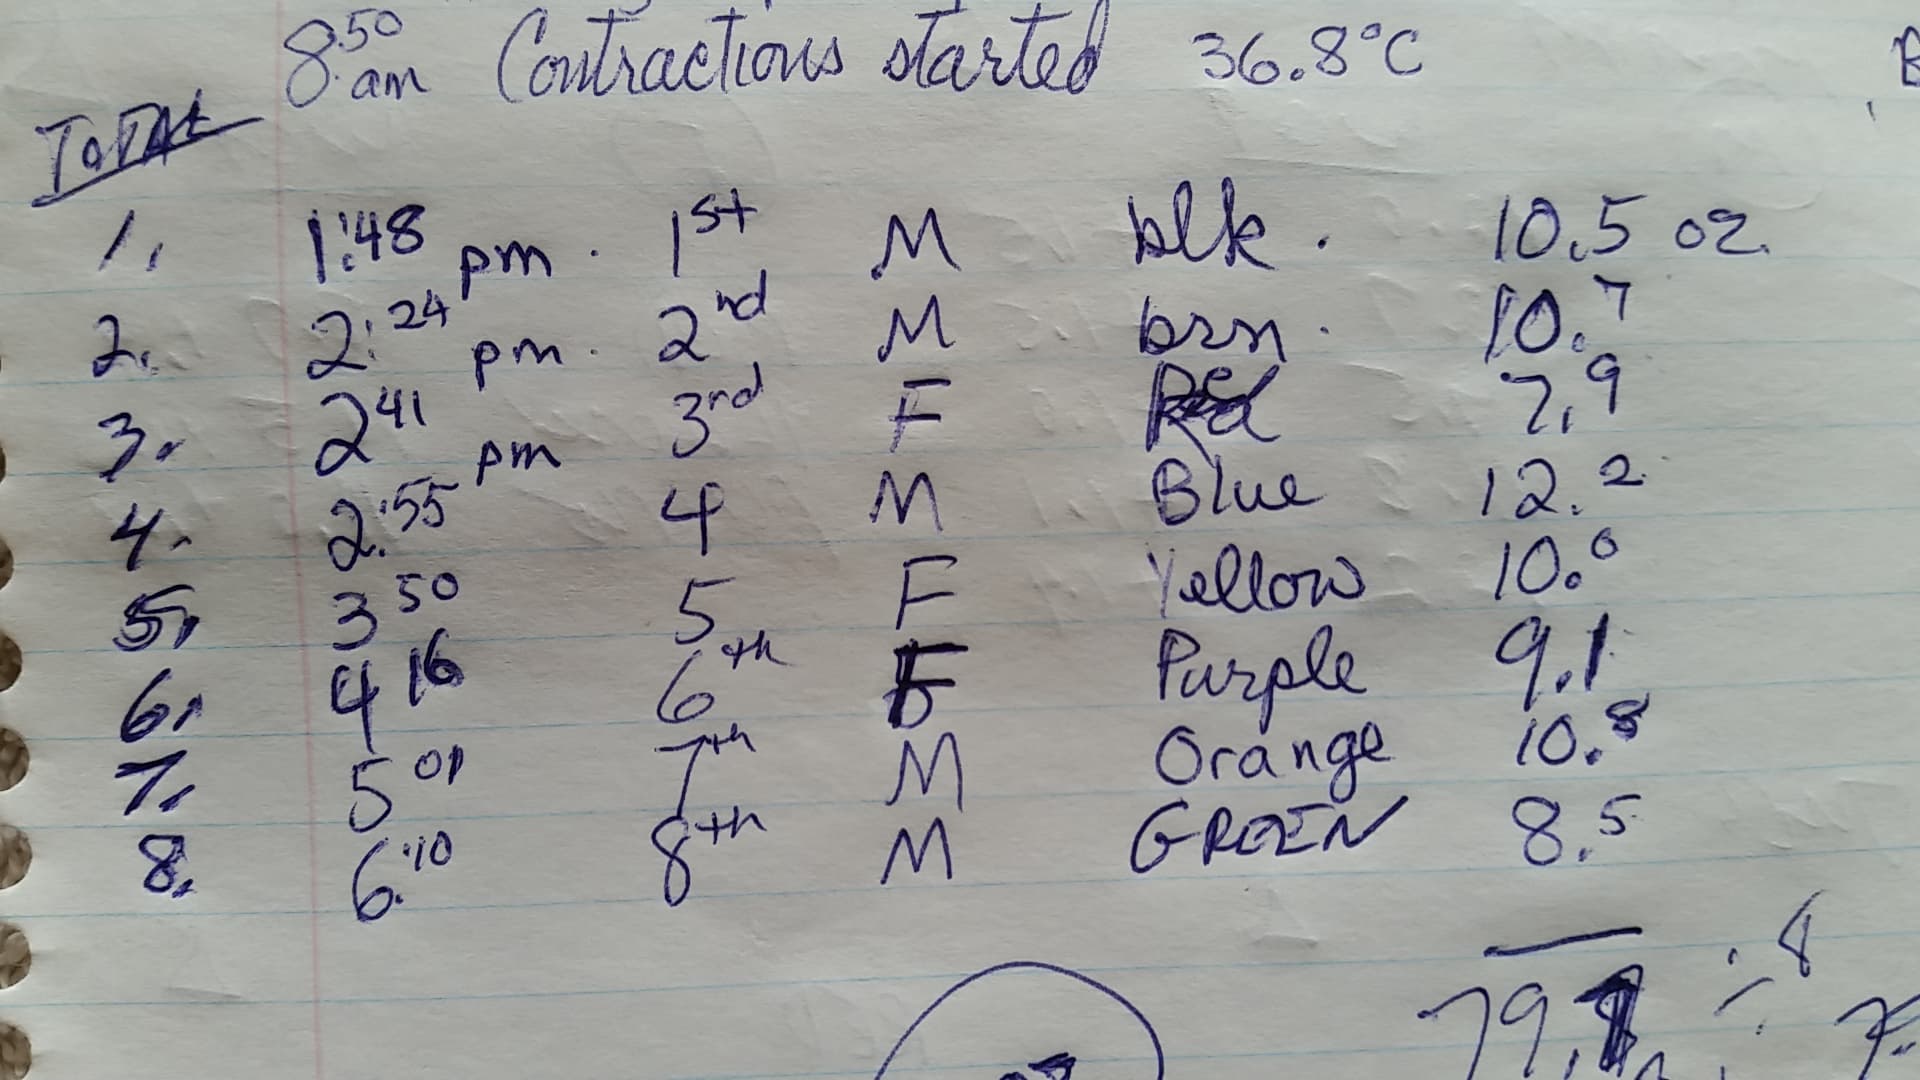 8:50 am Contractions started 36.8°C
TOTAL
1. 1:48 pm. 1st M blk. 10.5 oz.
2. 2:24 pm. 2nd M brn. 10.7
3. 2 41 pm 3rd F Red 7.9
4. 2:55 4 M Blue 12.2
5. 3 50 5 F Yellow 10.0
6. 4 16 6th F Purple 9.1
7. 5 01 7th M Orange 10.8
8. 6:10 8th M GREEN 8.5
÷ 8